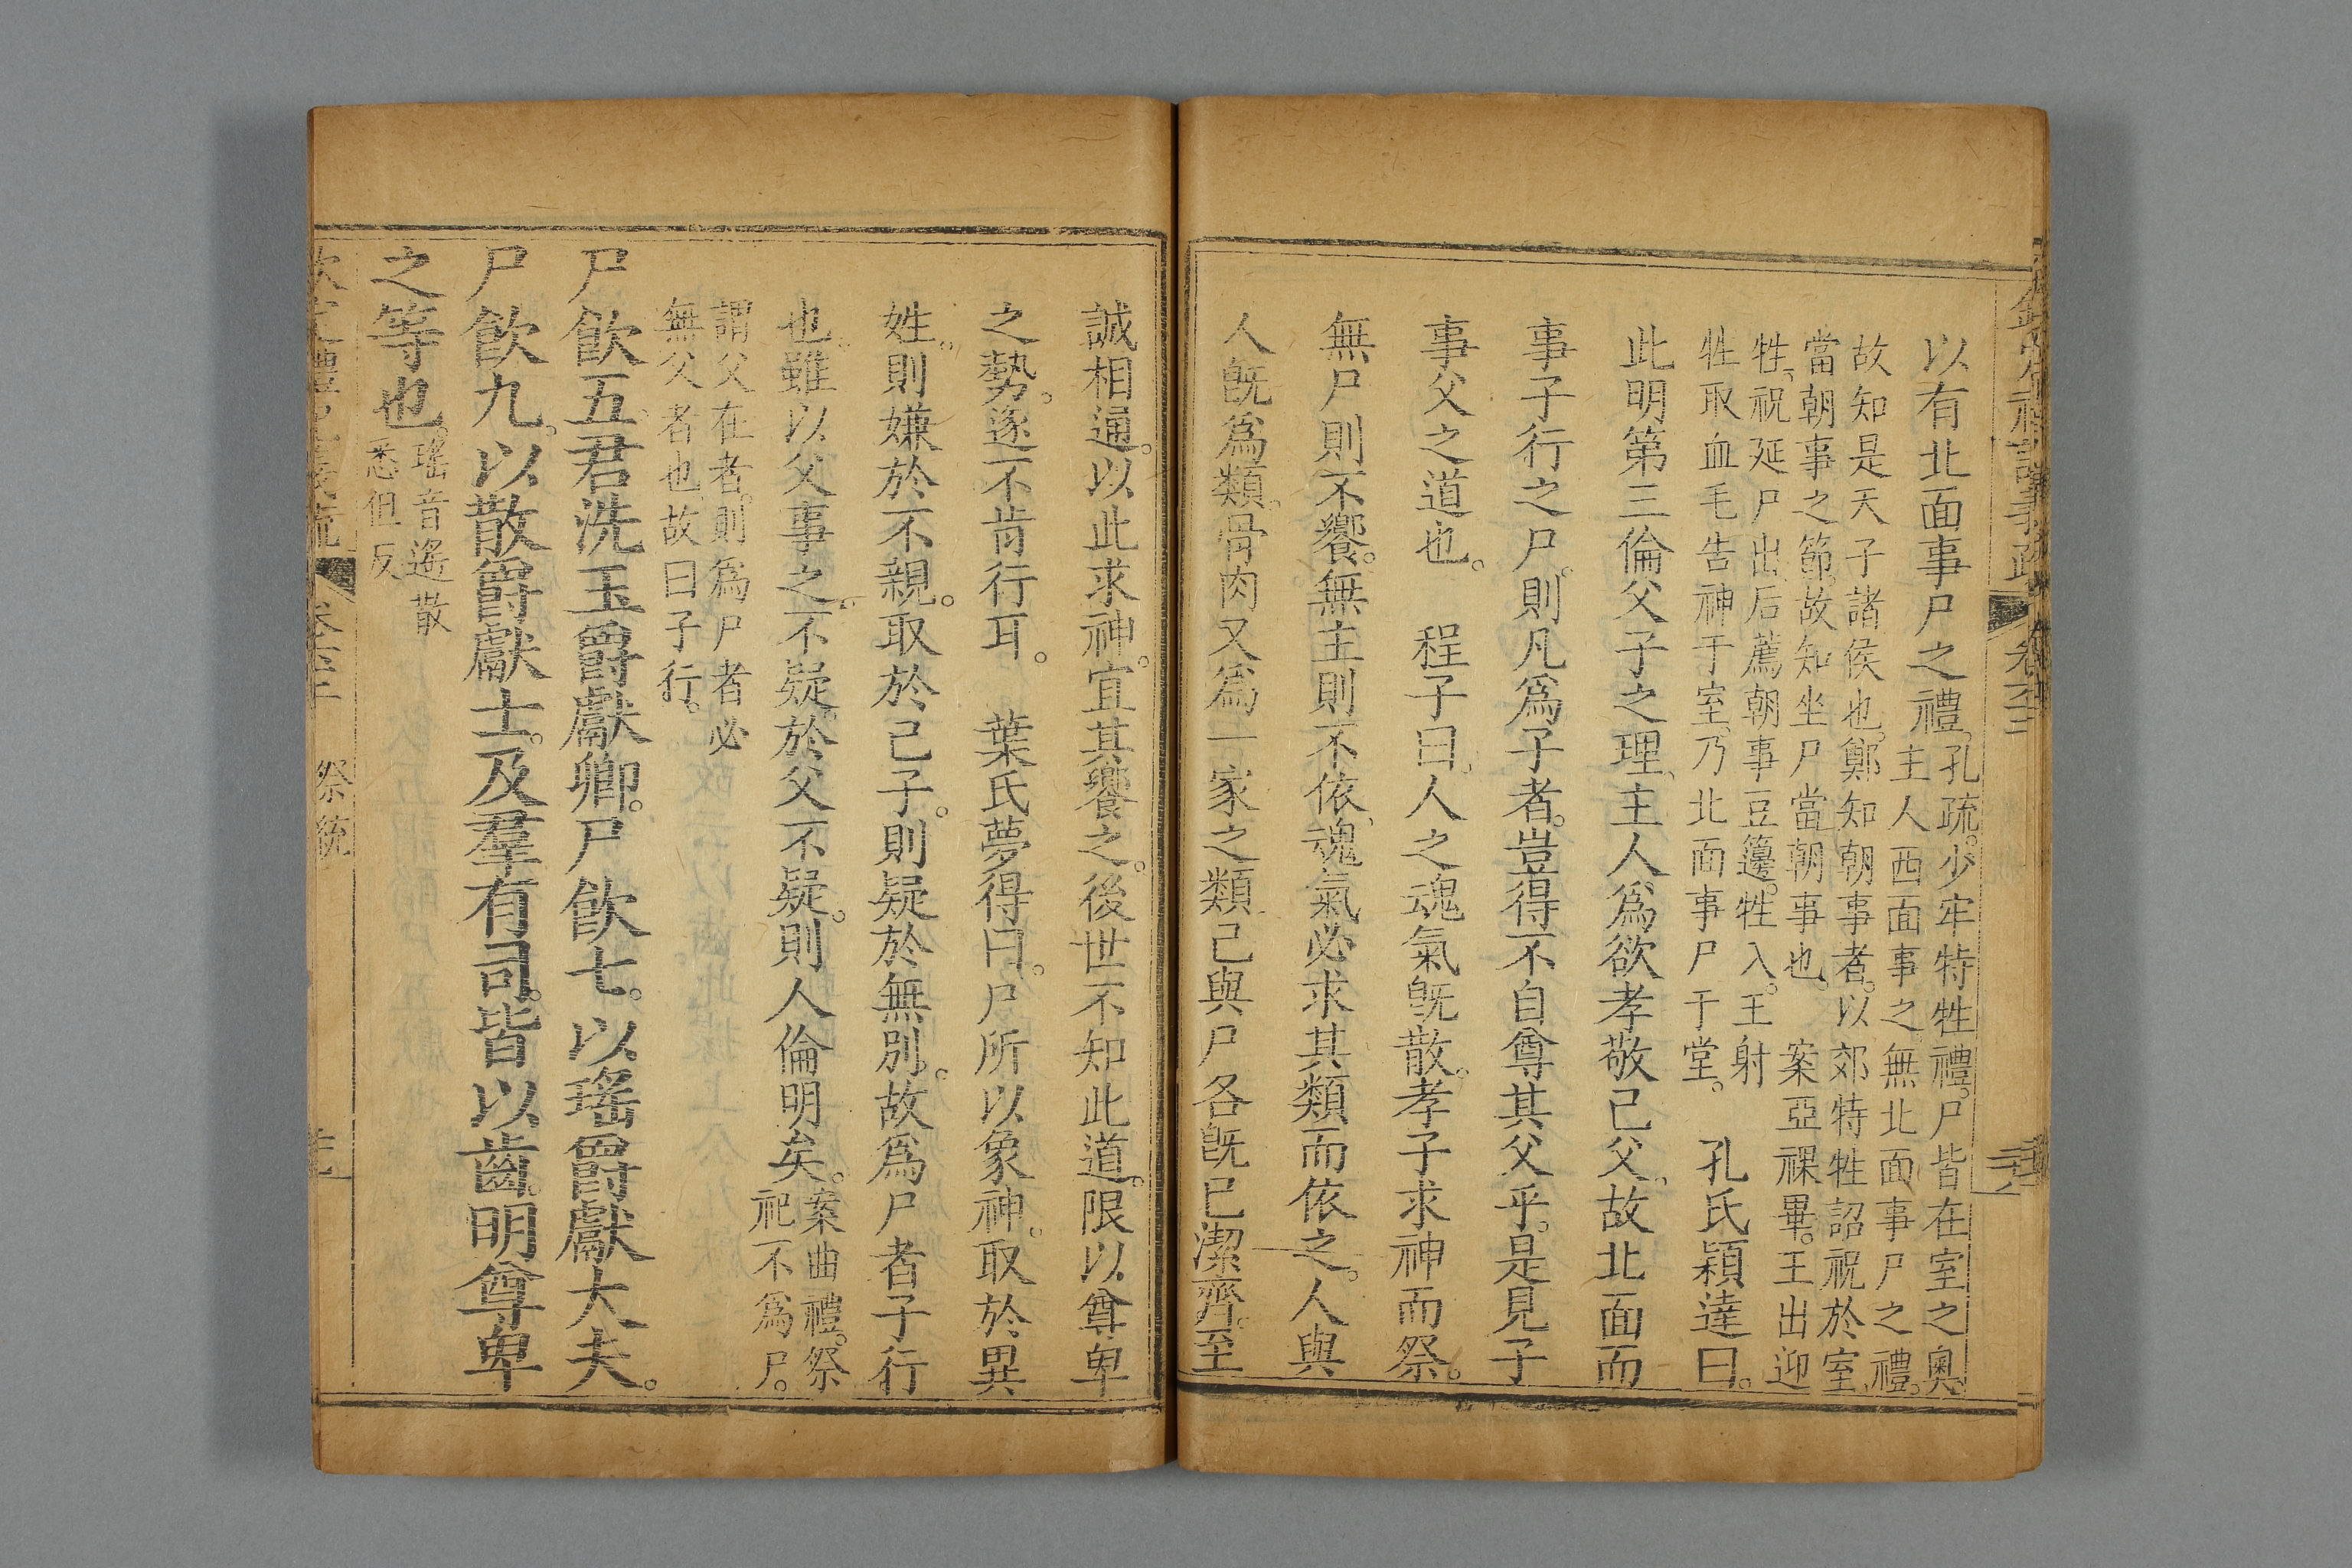 以有北面事尸之禮。孔疏。少牢特牲禮。尸皆在室之奧。
主人西面事之、無北面事尸之禮。
故知是天子諸侯也。鄭知朝事者。以郊特牲詔祝於室、
當朝事之節。故知坐尸當朝事也。 案亞祼畢。王出迎
牲、祝延尸出、后薦朝事豆籩。牲入。王射
牲取血毛告神于室、乃北面事尸于堂。
孔氏穎達曰。
此明第三倫父子之理、主人爲欲孝敬己父、故北面而
事子行之尸。則凡爲子者。豈得不自尊其父乎。是見子
事父之道也。 程子曰、人之魂氣旣散。孝子求神而祭。
無尸則不饗。無主則不依、魂氣必求其類而依之。人與
人旣爲類。骨肉又爲一家之類。己與尸各旣已潔齊。至
誠相通。以此求神。宜其饗之。後世不知此道。限以尊卑
之勢。遂不肯行耳。 葉氏夢得曰。尸所以象神。取於異
姓。則嫌於不親。取於己子。則疑於無別。故爲尸者子行
也。雖以父事之。不疑於父不疑。則人倫明矣。案曲禮。祭
祀不爲尸。
謂父在者。則爲尸者必
無父者也、故曰子行。
尸飮五。君洗玉爵獻卿。尸飮七。以瑤爵獻大夫。
尸飮九。以散爵獻士。及羣有司。皆以齒。明尊卑
之等也。瑤音遙散
悉但反
祭統